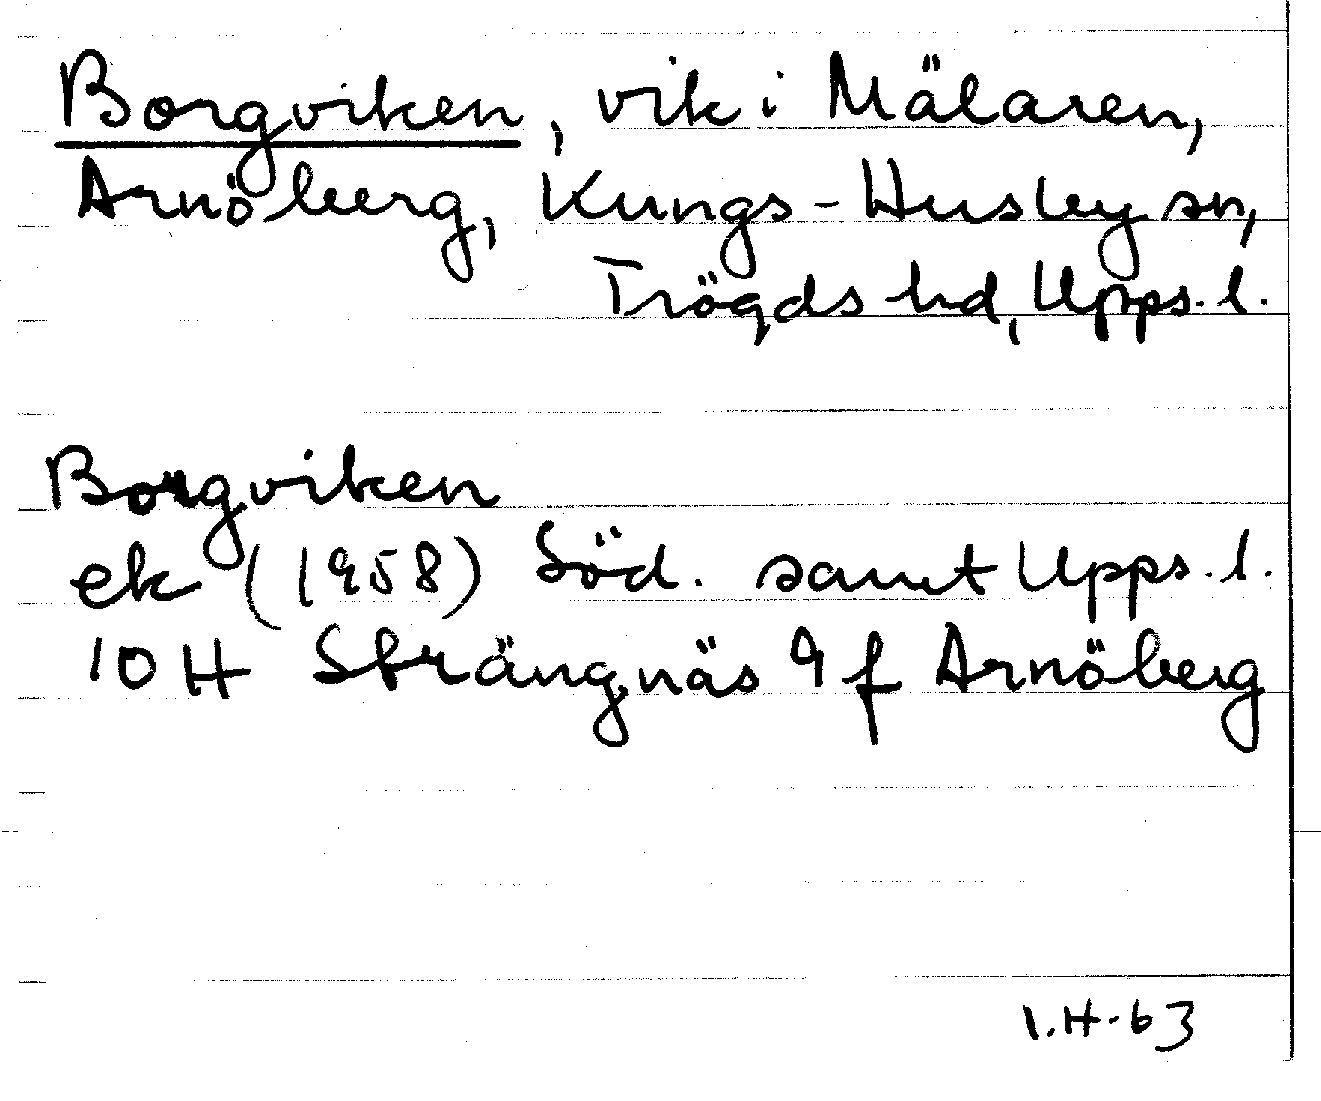 Borgviken, vik i Mälaren,
Arnöberg, Kungs-Husby sn,
Trögds hd, Upps. l.
Borgviken
ek (1958) Söd. samt Upps. l.
10 H Strängnäs 9 f Arnöberg
I.H-63